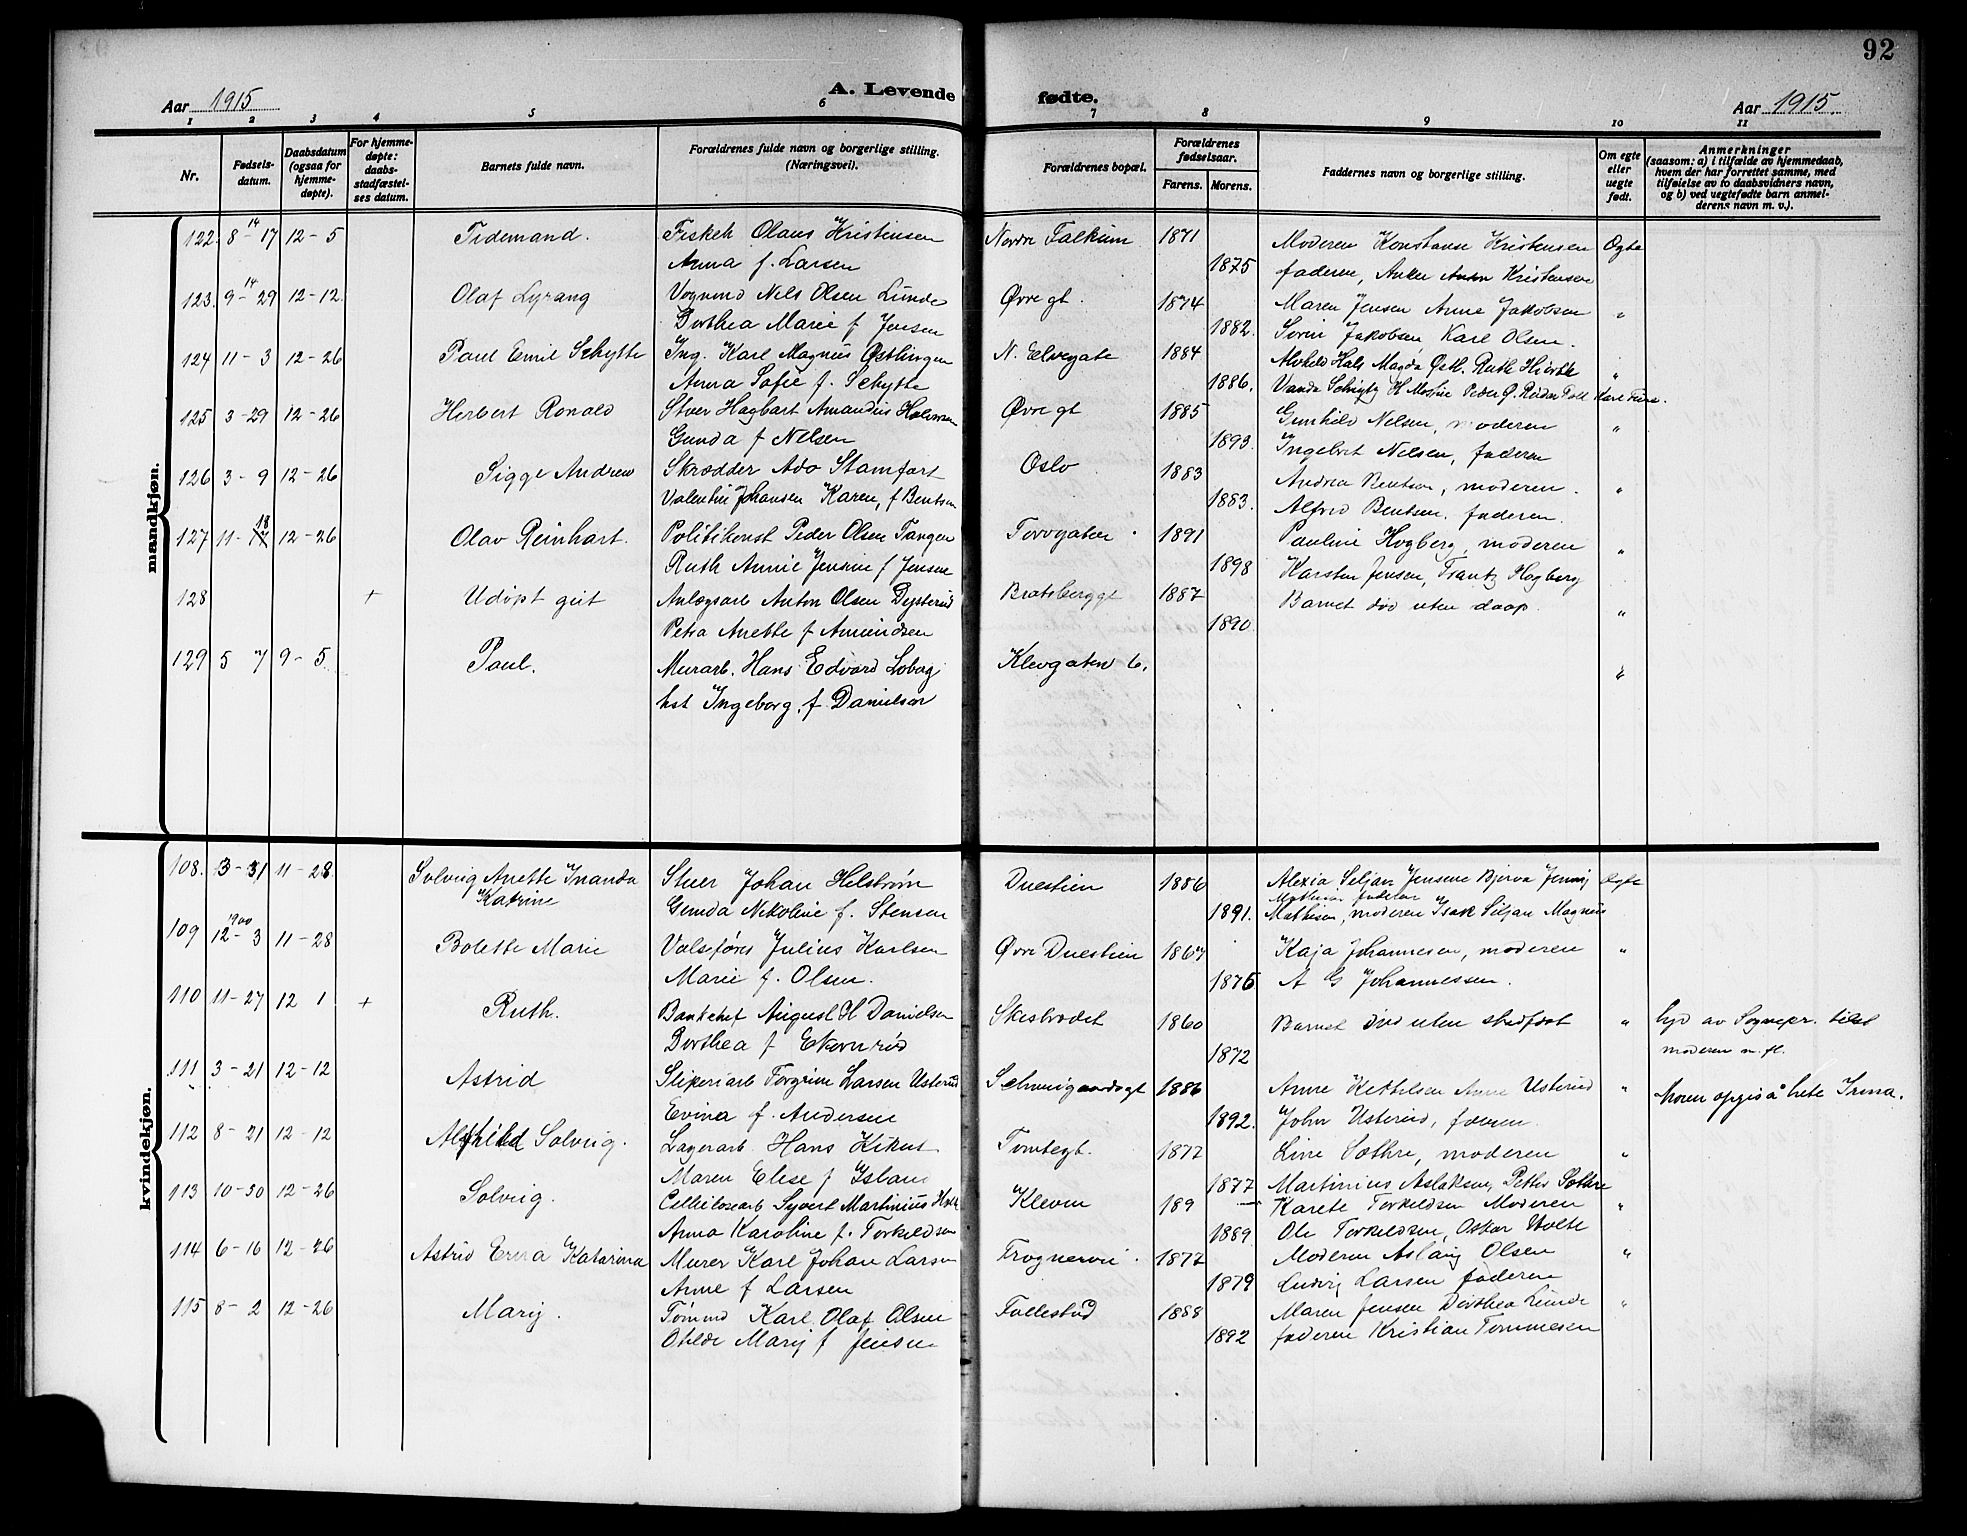 92
Aar 1915
A. Levende
fødte.
Aar 1915.
1 2 3 4 5 6 7 8 9 10 11
Nr.
Fødsels-
datum.
Daabsdatum
(ogsaa for
hjemme-
døpte).
For hjemme-
døpte:
daabs-
stadfæstel-
ses datum.
Barnets fulde navn.
Forældrenes fulde navn og borgerlige stilling.
(Næringsvei).
Forældrenes bopæl.
Forældrenes
fødselsaar.
Farens. Morens.
Faddernes navn og borgerlige stilling.
Om egte
eller
uegte
født.
Anmerkninger
(saasom: a) i tilfælde av hjemmedaab,
hvem der har forrettet samme, med
tilføielse av to daabsvidners navn,
og b) ved uegtefødte barn anmel-
derens navn m. v.).
mandkjøn.
122. 8-17 14 12-5 Tidemand. Fiskeh Olaus Kristensen Nordre Falkum 1871 Moderen Konstanse Kristensen Egte
Anna f. Larsen 1875 faderen, Anker Kristensen
123. 9-29 14 12-12. Olaf Lyrang Vognmd Nels Olsen Lunde Øvre gt. 1874 Maren Jensen Anne Jakobsen "
Dorthea Marie f Jensen 1882. Søren Jakobsen, Karl Olsen.
124 11-3 12-26 Paul Emil Schytte Ing. Karl Magnus Østlingen N. Elvegate 1884 Hals Magda Østl. Ruth "
Anna Sofie f. Schytte 1886. Vanda H Peder Ø.
125 3-29 12-26 Herbert Ronald Stuer Hagbart Amandus Halvorsen Øvre gt 1885 Gunhild Nelsen, moderen "
Gunda f Nelsen 1893. Ingebret Nelsen, faderen
126 3-9 12-26 Sigge Andrew Skrædder Ado Stamfort Oslo 1883 Andrea Bentsen, moderen. "
Valentin Johansen Karen, f Bentsen 1883. Alfred Bentsen. faderen.
127 11- 18 12-26 Olav Reinhart. Politikonst Peder Olsen Tangen Torvgaten. 1891 Pauline Hogberg, moderen "
Ruth Annie Jensine f Jensen 1898 Karsten Jensen, Frantz Hogberg
128 + Udøpt gut Anlægsarb Anton Olsen Dysterud Bratsberggt 1887 Barnet død uten daap. "
Petra Anette f Amundsen 1890
129 5 7 9-5. Paul. Murarb. Hans Edvard Klevgaten 6. "
hst Ingeborg, f Danielsen
kvindekjøn.
108. 3-31 11-28 Solveig Anette Inanda Stuer Johan Helstrøm Duestien 1886 Alexia Seljan Jensene Jenny Egte
Katrine Gunda Nikoline f. Stensen 1891. Mathisen, moderen Isak Siljan Magnus
Mathisen faderen
109 1900 12-3 11-28 Bolette Marie Valsefører Julius Karlsen Øvre Duestien 1867 Kaja Johannesen, moderen "
Marie f. Olsen. 1876 A G Johannessen.
110 11-27 12 1 + Ruth. Bankchef August H Danielsen Skistredet 1860 Barnet død uten stadfæst " hjd av Sognepr. tilst
Dorthea f Ekornrud 1872 moderen m. fl.
111 3-21 12-12 Astrid Sliperiarb Torgrim Larsen Usterud Schweigaardsgt 1886 Anne Kettilsen Anne Usterud " Moren opgis å hete Irma.
Evina f. Andersen 1892. John Usterud, faderen.
112 8-21 12-12 Alfhild Solveig. Lagerarb Hans Kikut Tomtegt. 1877 Line Sothre, moderen "
Maren Elise f Island 1877 Martinius Aslaksen, Petter Sothre
113 10-30 12-26 Solveig. Cellulosearb Syvert Martinius Holte Kleven 189 Karete Torkeldsen Moderen "
Anna Karoline f. Torkeldsen 1889. Ole Torkeldsen, Oskar Holte
114 6-16 12-26 Astrid Erna Katarina Murer Karl Johan Larsen Frogneroei. 1877 Moderen Aslaug Olsen "
Anne f Larsen 1879 Ludvig Larsen faderen
115 8-2 12-26 Marij. Tømmd Karl Olaf Olsen Follestad 1888 Maren Jensen Dorthea Lunde "
Otelde Marij f Jensen 1892 faderen Kristian Tommesen